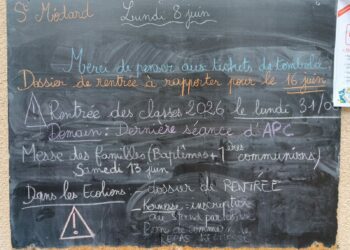 St Médard Lundi 8 juin
Merci de penser aux tickets de tombola
Dossier de rentrée à rapporter pour le 16 juin
Rentrée des classes 2026 le lundi 31/0
Demain : Dernière séance d'APC
Messe des familles (Baptêmes + 1ères communions)
Samedi 13 juin
Dans les Ecolions : - dossier de RENTRÉE
- Kermesse : inscription